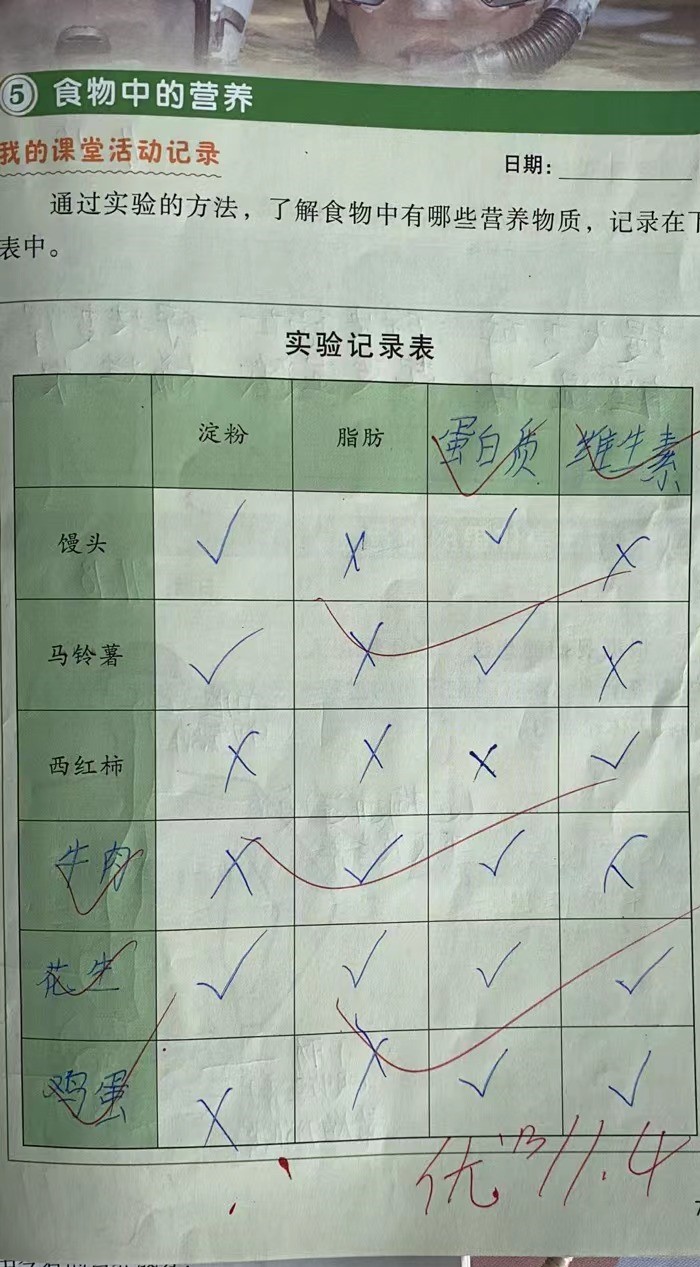 5 食物中的营养
我的课堂活动记录
日期：
通过实验的方法，了解食物中有哪些营养物质，记录在下
表中。
实验记录表
淀粉 脂肪 蛋白质 维生素
馒头 ✓ ✗ ✓ ✗
马铃薯 ✓ ✗ ✓ ✗
西红柿 ✗ ✗ ✗ ✓
牛肉 ✗ ✓ ✓ ✗
花生 ✓ ✓ ✓ ✓
鸡蛋 ✗ ✗ ✓ ✓
优 11.4